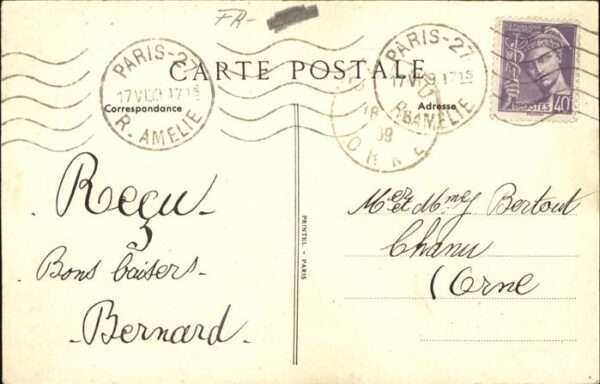 FR-
PARIS-27
17 VI 39 17 15
R. AMELIE
PARIS-27
17 VI 39 17 15
R. AMELIE
18
39
ORNE
POSTES 40
CARTE POSTALE
Correspondance
Adresse
Reçu -
Bons baisers -
- Bernard -
PRINTEL - PARIS
Mer et Mmes Bertout
Chanu
(Orne